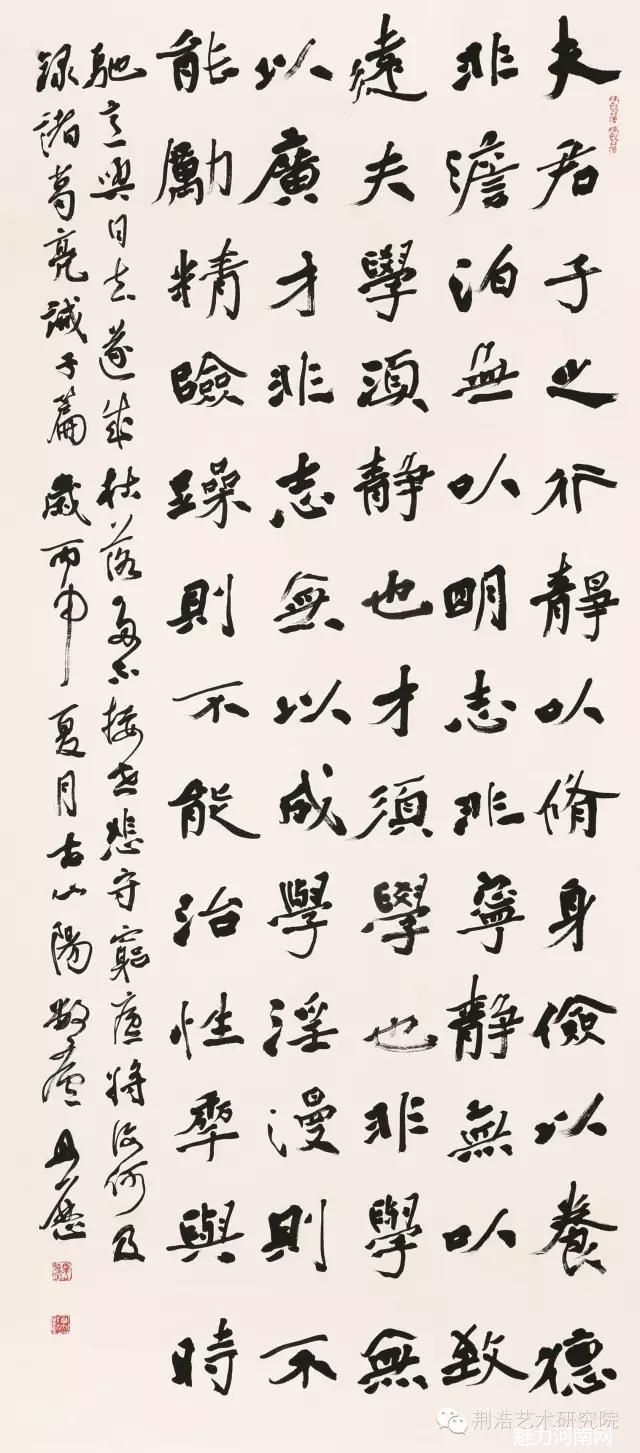 夫君子之行靜以脩身儉以養德
非澹泊無以明志非寧靜無以致
遠夫學須靜也才須學也非學無
以廣才非志無以成學淫漫則不
能勵精險躁則不能治性年與時
馳意與日去遂成枯落多不接世悲守窮廬將復何及
錄諸葛亮誡子篇歲丙申夏月古山陽
荆浩艺术研究院
魅力河南网